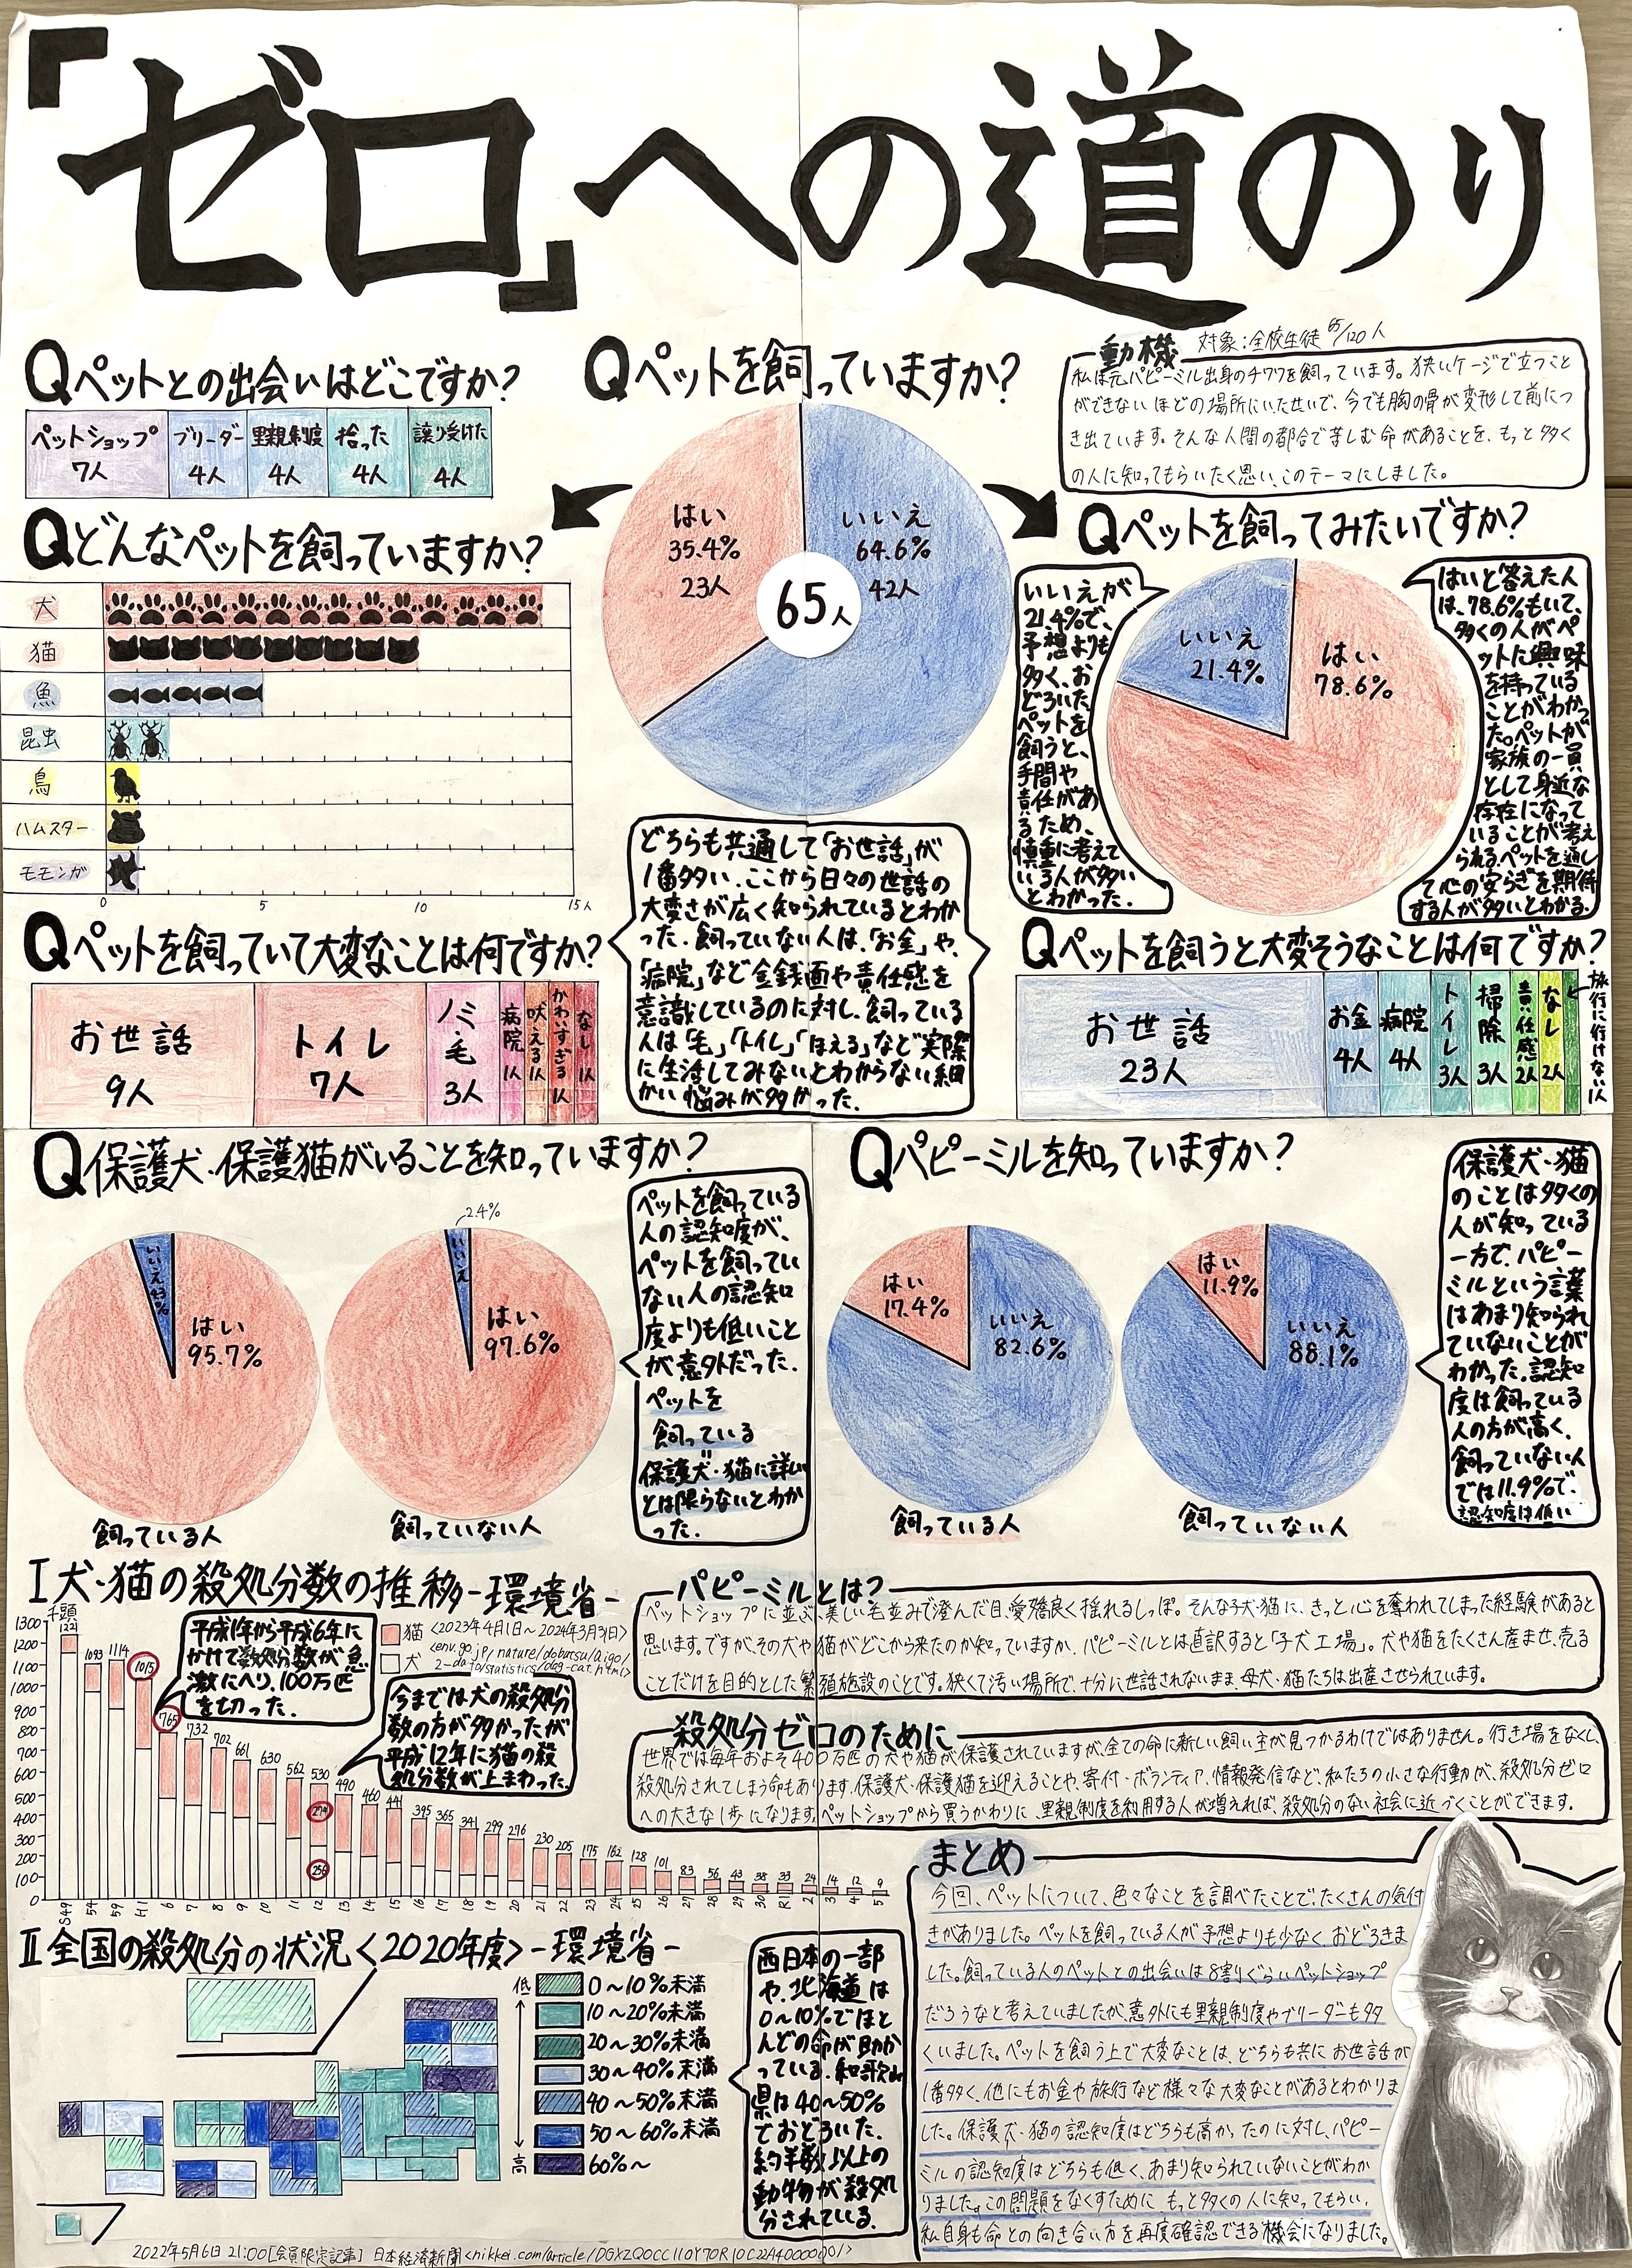 「ゼロ」への道のり
Qペットとの出会いはどこですか?
ペットショップ 7人
ブリーダー 4人
里親制度 4人
拾った 4人
譲り受けた 4人
Qペットを飼っていますか?
はい
35.4%
23人
いいえ
64.6%
42人
65人
動機 対象:全校生徒 65/120人
私は元パピーミル出身のチワワを飼っています。狭いケージで立つこと
ができないほどの場所にいたせいで、今でも胸の骨が変形して前につ
き出ています。そんな人間の都合で苦しむ命があることを、もっと多く
の人に知ってもらいたく思い、このテーマにしました。
Qどんなペットを飼っていますか?
犬
猫
魚
昆虫
鳥
ハムスター
モモンガ
0 5 10 15人
Qペットを飼ってみたいですか?
いいえ
21.4%
はい
78.6%
いいえが
21.4%で、
予想よりも
多く、お
どろいた。
ペットを
飼うと、
手間や
責任があ
るため、
慎重に考えて
いる人が多い
とわかった.
はいと答えた人
は、78.6%もいて、
多くの人がペ
ットに興味
を持っている
ことがわかっ
た。ペットが
家族の一員
として身近な
存在になって
いることが考え
られる。ペットを通し
て心の安らぎを期待
する人が多いとわかる.
どちらも共通して「お世話」が
1番多い.ここから日々の世話の
大変さが広く知られているとわか
った.飼っていない人は、「お金」や、
「病院」など金銭面や責任感を
意識しているのに対し、飼っている
人は「毛」「トイレ」「ほえる」など実際
に生活してみないとわからない細
かい悩みが多かった.
Qペットを飼っていて大変なことは何ですか?
お世話 9人
トイレ 7人
ノミ毛 3人
病院 1人
吠える 1人
かわいすぎる 1人
なし 1人
Qペットを飼うと大変そうなことは何ですか?
お世話 23人
お金 4人
病院 4人
トイレ 3人
掃除 3人
責任感 2人
なし 2人
旅行に行けない 1人
Q保護犬・保護猫がいることを知っていますか?
いいえ 4.3%
はい
95.7%
飼っている人
2.4%
いいえ
はい
97.6%
飼っていない人
ペットを飼っている
人の認知度が、
ペットを飼ってい
ない人の認知
度よりも低いこと
が意外だった.
ペットを
飼っている
保護犬・猫に詳しい
とは限らないとわか
った.
Qパピーミルを知っていますか?
はい
17.4%
いいえ
82.6%
飼っている人
はい
11.9%
いいえ
88.1%
飼っていない人
保護犬・猫
のことは多くの
人が知っている
一方で、パピー
ミルという言葉
はあまり知られ
ていないことが
わかった.認知
度は飼っている
人の方が高く、
飼っていない人
では11.9%で、
認知度は低い
I犬・猫の殺処分数の推移-環境省-
千頭
1300
1200
1100
1000
900
800
700
600
500
400
300
200
100
0
1221 1093 1114 1015 765 732 702 661 630 562 530 490 460 441 395 365 341 299 276 230 205 175 162 128 101 83 56 43 38 33 24 14 12 9
274
256
S49 54 59 H1 6 7 8 9 10 11 12 13 14 15 16 17 18 19 20 21 22 23 24 25 26 27 28 29 30 R1 2 3 4 5
平成1年から平成6年に
かけて数処分数が急
激にへり、100万匹
を切った.
猫
犬
<2023年4月1日~2024年3月31日>
<env.go.jp/nature/dobutsu/aigo/
2-data/statistics/dog-cat.html>
今までは犬の殺処分
数の方が多かったが
平成12年に猫の殺
処分数が上まわった.
パピーミルとは?
ペットショップに並ぶ、美しい毛並みで澄んだ目、愛嬌良く揺れるしっぽ。そんな子犬・猫に、きっと心を奪われてしまった経験があると
思います。ですが、その犬や猫がどこから来たのか知っていますか.パピーミルとは直訳すると「子犬工場」。犬や猫をたくさん産ませ、売る
ことだけを目的とした繁殖施設のことです。狭くて汚い場所で、十分に世話されないまま、母犬・猫たちは出産させられています。
殺処分ゼロのために
世界では毎年およそ400万匹の犬や猫が保護されていますが、全ての命に新しい飼い主が見つかるわけではありません。行き場をなくし、
殺処分されてしまう命もあります.保護犬・保護猫を迎えることや、寄付・ボランティア、情報発信など、私たちの小さな行動が、殺処分ゼロ
への大きな1歩になります。ペットショップから買うかわりに、里親制度を利用する人が増えれば、殺処分のない社会に近づくことができます.
II全国の殺処分の状況<2020年度>-環境省-
低
高
0~10%未満
10~20%未満
20~30%未満
30~40%未満
40~50%未満
50~60%未満
60%~
西日本の一部
や、北海道は
0~10%でほと
んどの命が助か
っている.和歌山
県は40~50%
でおどろいた.
約半数以上の
動物が殺処
分されている.
まとめ
今回、ペットについて、色々なことを調べたことで、たくさんの気付
きがありました。ペットを飼っている人が予想よりも少なく、おどろきま
した。飼っている人のペットとの出会いは8割ぐらいペットショップ
だろうなと考えていましたが、意外にも里親制度やブリーダーも多
くいました。ペットを飼う上で大変なことは、どちらも共にお世話が
1番多く、他にもお金や旅行など様々な大変なことがあるとわかりま
した。保護犬・猫の認知度はどちらも高かったのに対し、パピー
ミルの認知度はどちらも低く、あまり知られていないことがわか
りました。この問題をなくすために もっと多くの人に知ってもらい、
私自身も命との向き合い方を再度確認できる機会になりました。
2022年5月6日 21:00[会員限定記事] 日本経済新聞<nikkei.com/article/DGXZQOCC110Y70R10C22A4000000/>